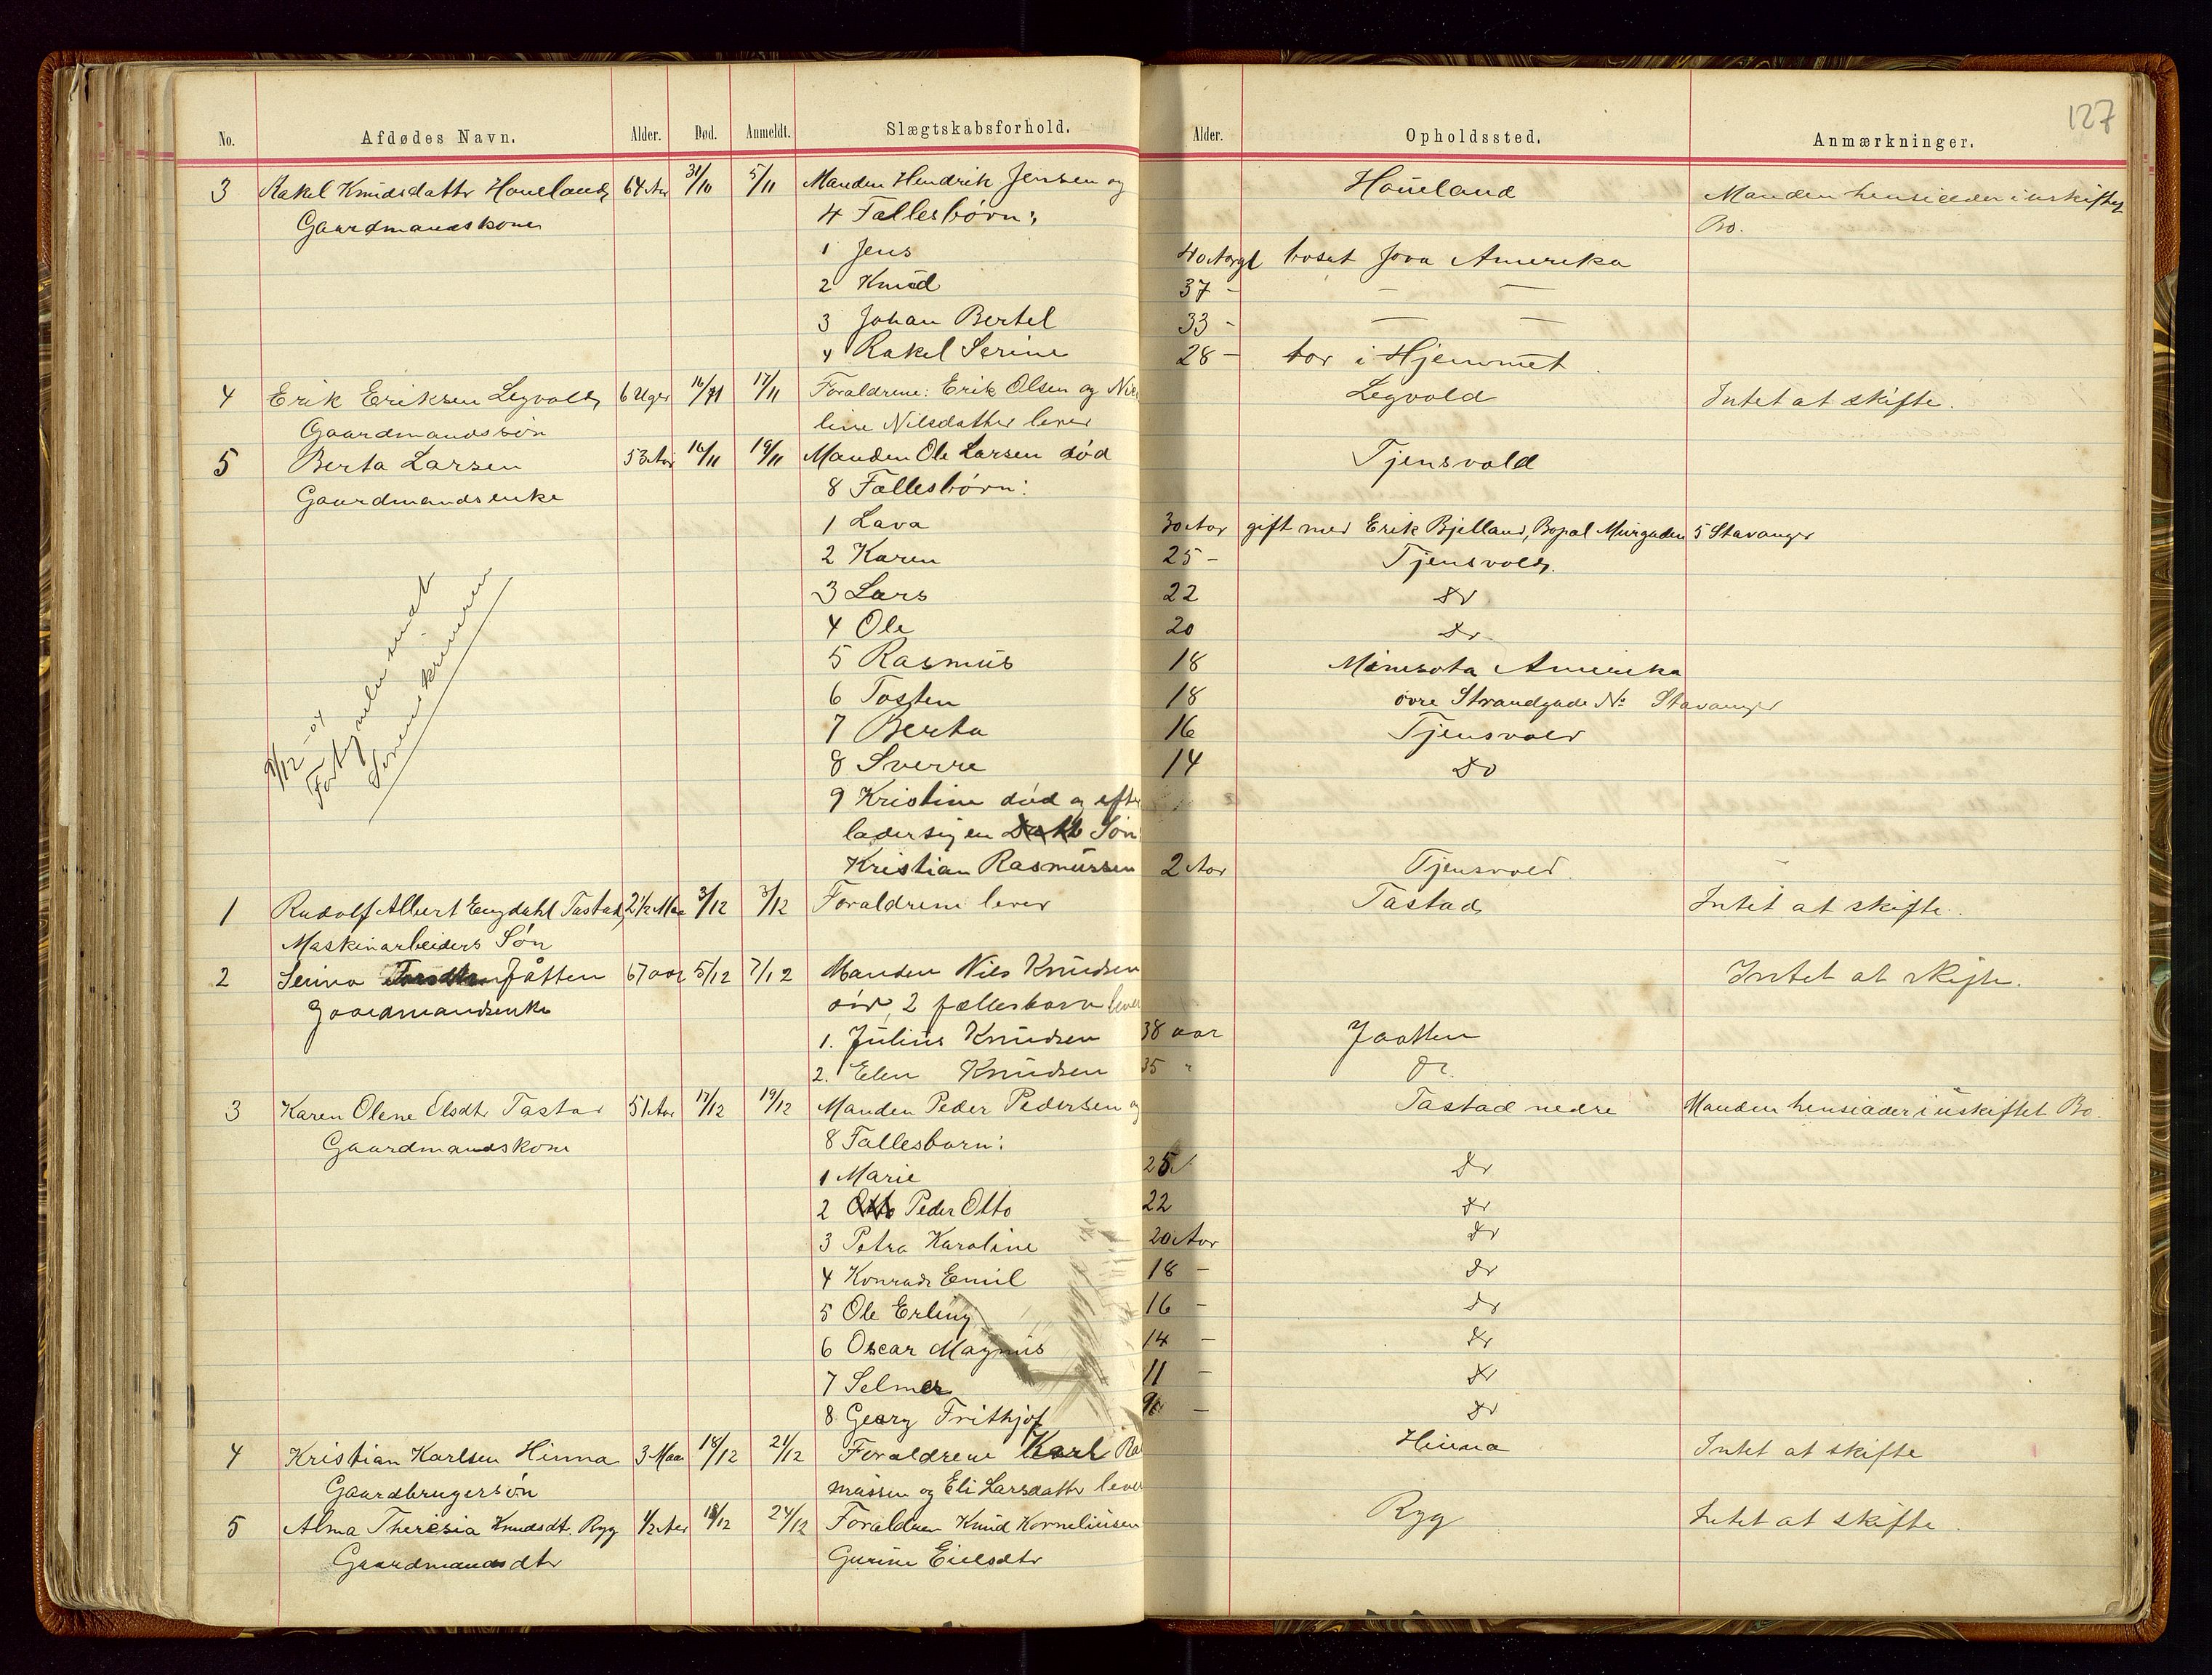 127
No. Afdødes Navn. Alder. Død. Anmeldt. Slægtskabsforhold. Alder. Opholdssted. Anmærkninger.
3 Rakel Knudsdatter Haueland 64 Aar 31/10 5/11 Manden Hendrik Jensen og Haueland Manden hensidder i uskiftet
Gaardmandskone 4 Fællesbørn: Bo.
1 Jens 40 Aar gl bosat Jova Amerika
2 Knud 37 - — —
3 Johan Bertel 33 - — —
4 Rakel Serine 28 - bor i Hjemmet
4 Erik Eriksen Legvold 6 Uger 16/11 17/11 Forældrene: Erik Olsen og Nie Legvold Intet at skifte.
Gaardmandssøn line Nilsdatter lever
5 Berta Larsen 53 Aar 16/11 19/11 Manden Ole Larsen død Tjensvold
Gaardmandsenke 8 Fællesbørn:
1 Lava 30 Aar gift med Erik Bjelland, Bopæl Murgaden 5 Stavanger
2 Karen 25 - Tjensvold
3 Lars 22 Do
4 Ole 20 Do
5 Rasmus 18 Minesota Amerika
6 Tosten 18 øvre Strandgade No Stavanger
7 Berta 16 Tjensvold
8 Sverre 14 Do
9 Kristine død og efter
lader sig en Søn
Kristian Rasmussen 2 Aar Tjensvold.
9/12 -04
Fortegnelse sendt
Sorenskriveren
1 Rudolf Albert Engdahl Tastad 2 1/2 Maa 3/12 3/12 Forældrene lever Tastad Intet at skifte.
Maskinarbeiders Søn
2 Serina Jåtten 67 aar 5/12 7/12 Manden Nils Knudsen Intet at skifte.
Gaardmandsenke død, 2 fællesbarn lever
1. Julius Knudsen 38 aar Jaatten
2. Elen Knudsen 35 " Do.
3 Karen Olene Elsdtr Tastad 51 Aar 17/12 19/12 Manden Peder Pedersen og Tastad nedre Manden hensidder i uskiftet Bo.
Gaardmandskone 8 Fællesbarn:
1 Marie 25 Do
2 Otto Peder Otto 22 Do
3 Petra Karoline 20 Aar Do
4 Konrad Emil 18 - Do
5 Ole Erling 16 - Do
6 Oscar Magnus 14 - Do
7 Selmer 11 - Do
8 Georg Frithjof 9 - Do
4 Kristian Karlsen Hinna 3 Maa 18/12 21/12 Forældrene Karl Ra Hinna Intet at skifte
Gaardbrugersøn mussen og Eli Larsdatter lever
5 Alma Theresia Knudsdt. Ryg 1/2 Aar 18/12 24/12 Forældren Knud Korneliusen Ryg Intet at skifte.
Gaardmandsdtr Gurine Eielsdtr